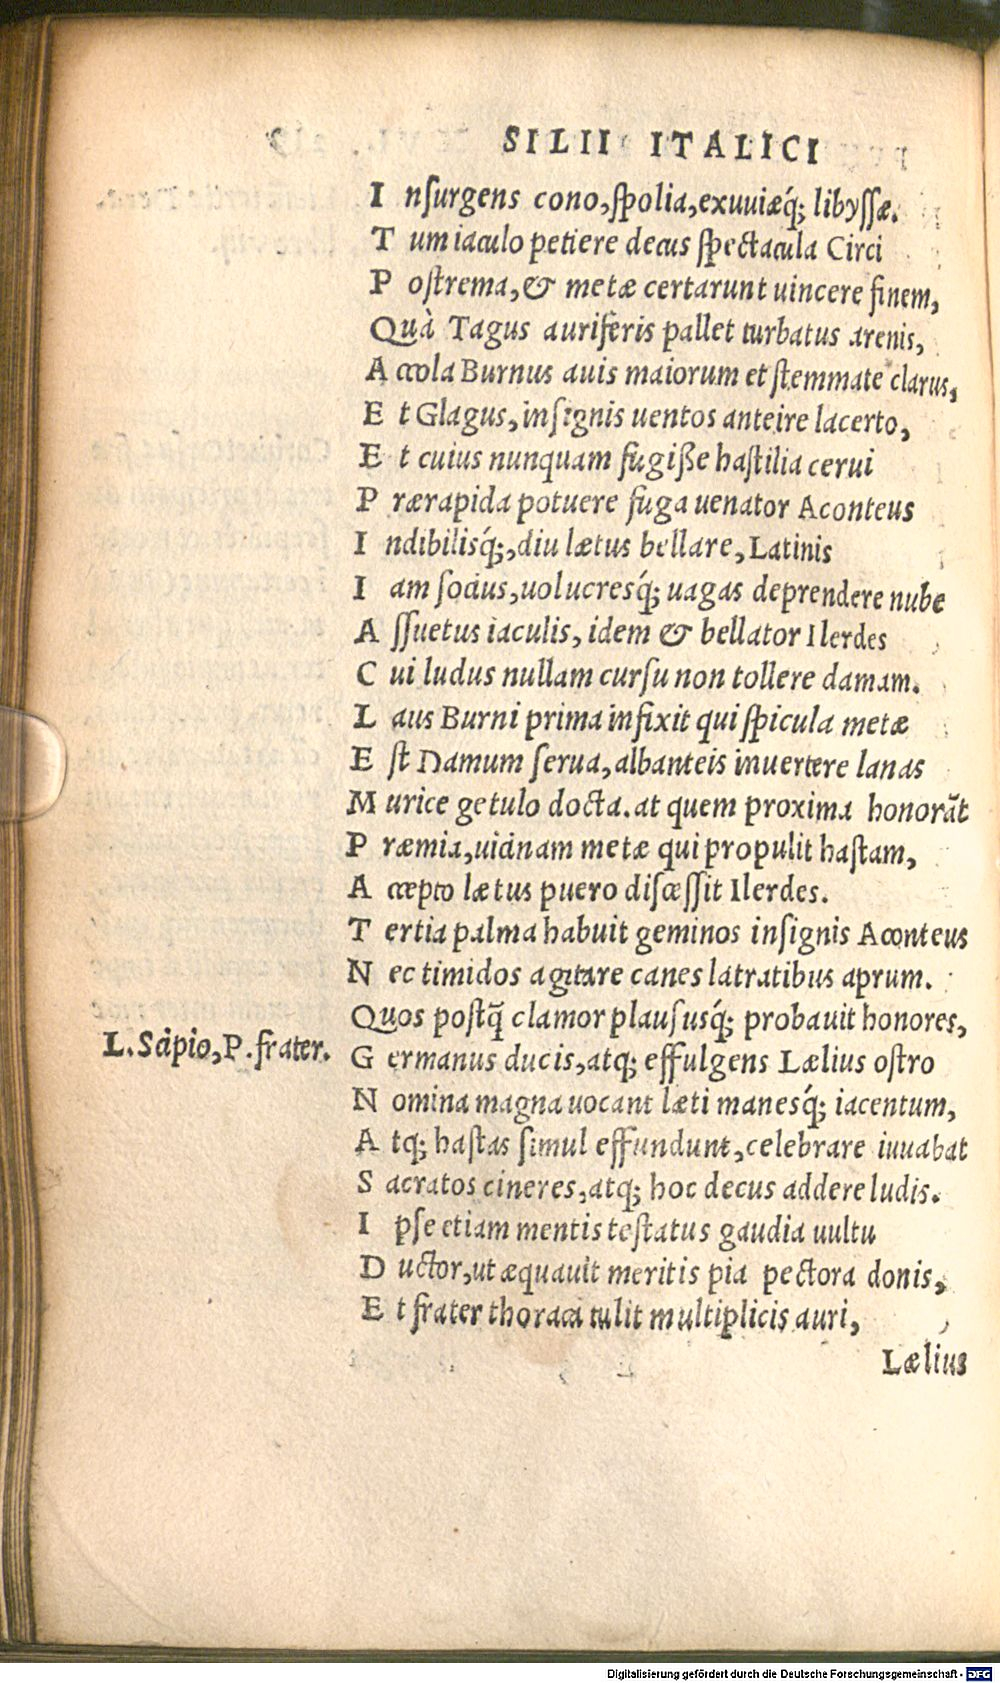 SILII ITALICI
Insurgens cono, spolia, exuuiæq́; libyssæ.
Tum iaculo petiere decus spectacula Circi
Postrema, & metæ certarunt uincere finem,
Quà Tagus auriferis pallet turbatus arenis,
Accola Burnus auis maiorum et stemmate clarus,
Et Glagus, insignis uentos anteire lacerto,
Et cuius nunquam fugiße hastilia cerui
Prærapida potuere fuga uenator Aconteus
Indibilisq́;, diu lætus bellare, Latinis
Iam socius, uolucresq́; uagas deprendere nube
Assuetus iaculis, idem & bellator Ilerdes
Cui ludus nullam cursu non tollere damam.
Laus Burni prima infixit qui spicula metæ
Est Damum serua, albanteis inuertere lanas
Murice getulo docta. at quem proxima honorāt
Præmia, uicinam metæ qui propulit hastam,
Accepto lætus puero discessit Ilerdes.
Tertia palma habuit geminos insignis Aconteus
Nec timidos agitare canes latratibus aprum.
Quos postq̄ clamor plaususq́; probauit honores,
L. Scipio, P. frater.
Germanus ducis, atq; effulgens Lælius ostro
Nomina magna uocant læti manesq́; iacentum,
Atq; hastas simul effundunt, celebrare iuuabat
Sacratos cineres, atq; hoc decus addere ludis.
Ipse etiam mentis testatus gaudia uultu
Ductor, ut æquauit meritis pia pectora donis,
Et frater thoraca tulit multiplicis auri,
Lælius
Digitalisierung gefördert durch die Deutsche Forschungsgemeinschaft - DFG